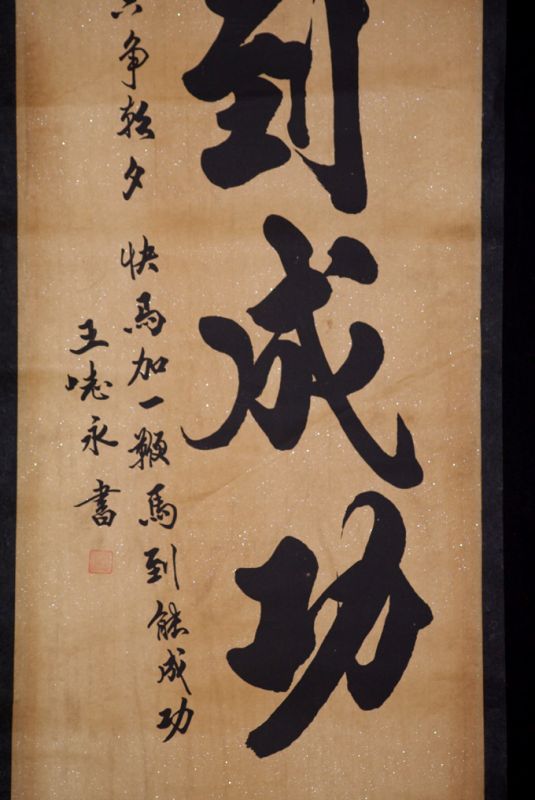 到成功
争朝夕 快馬加一鞭馬到能成功
王 永書